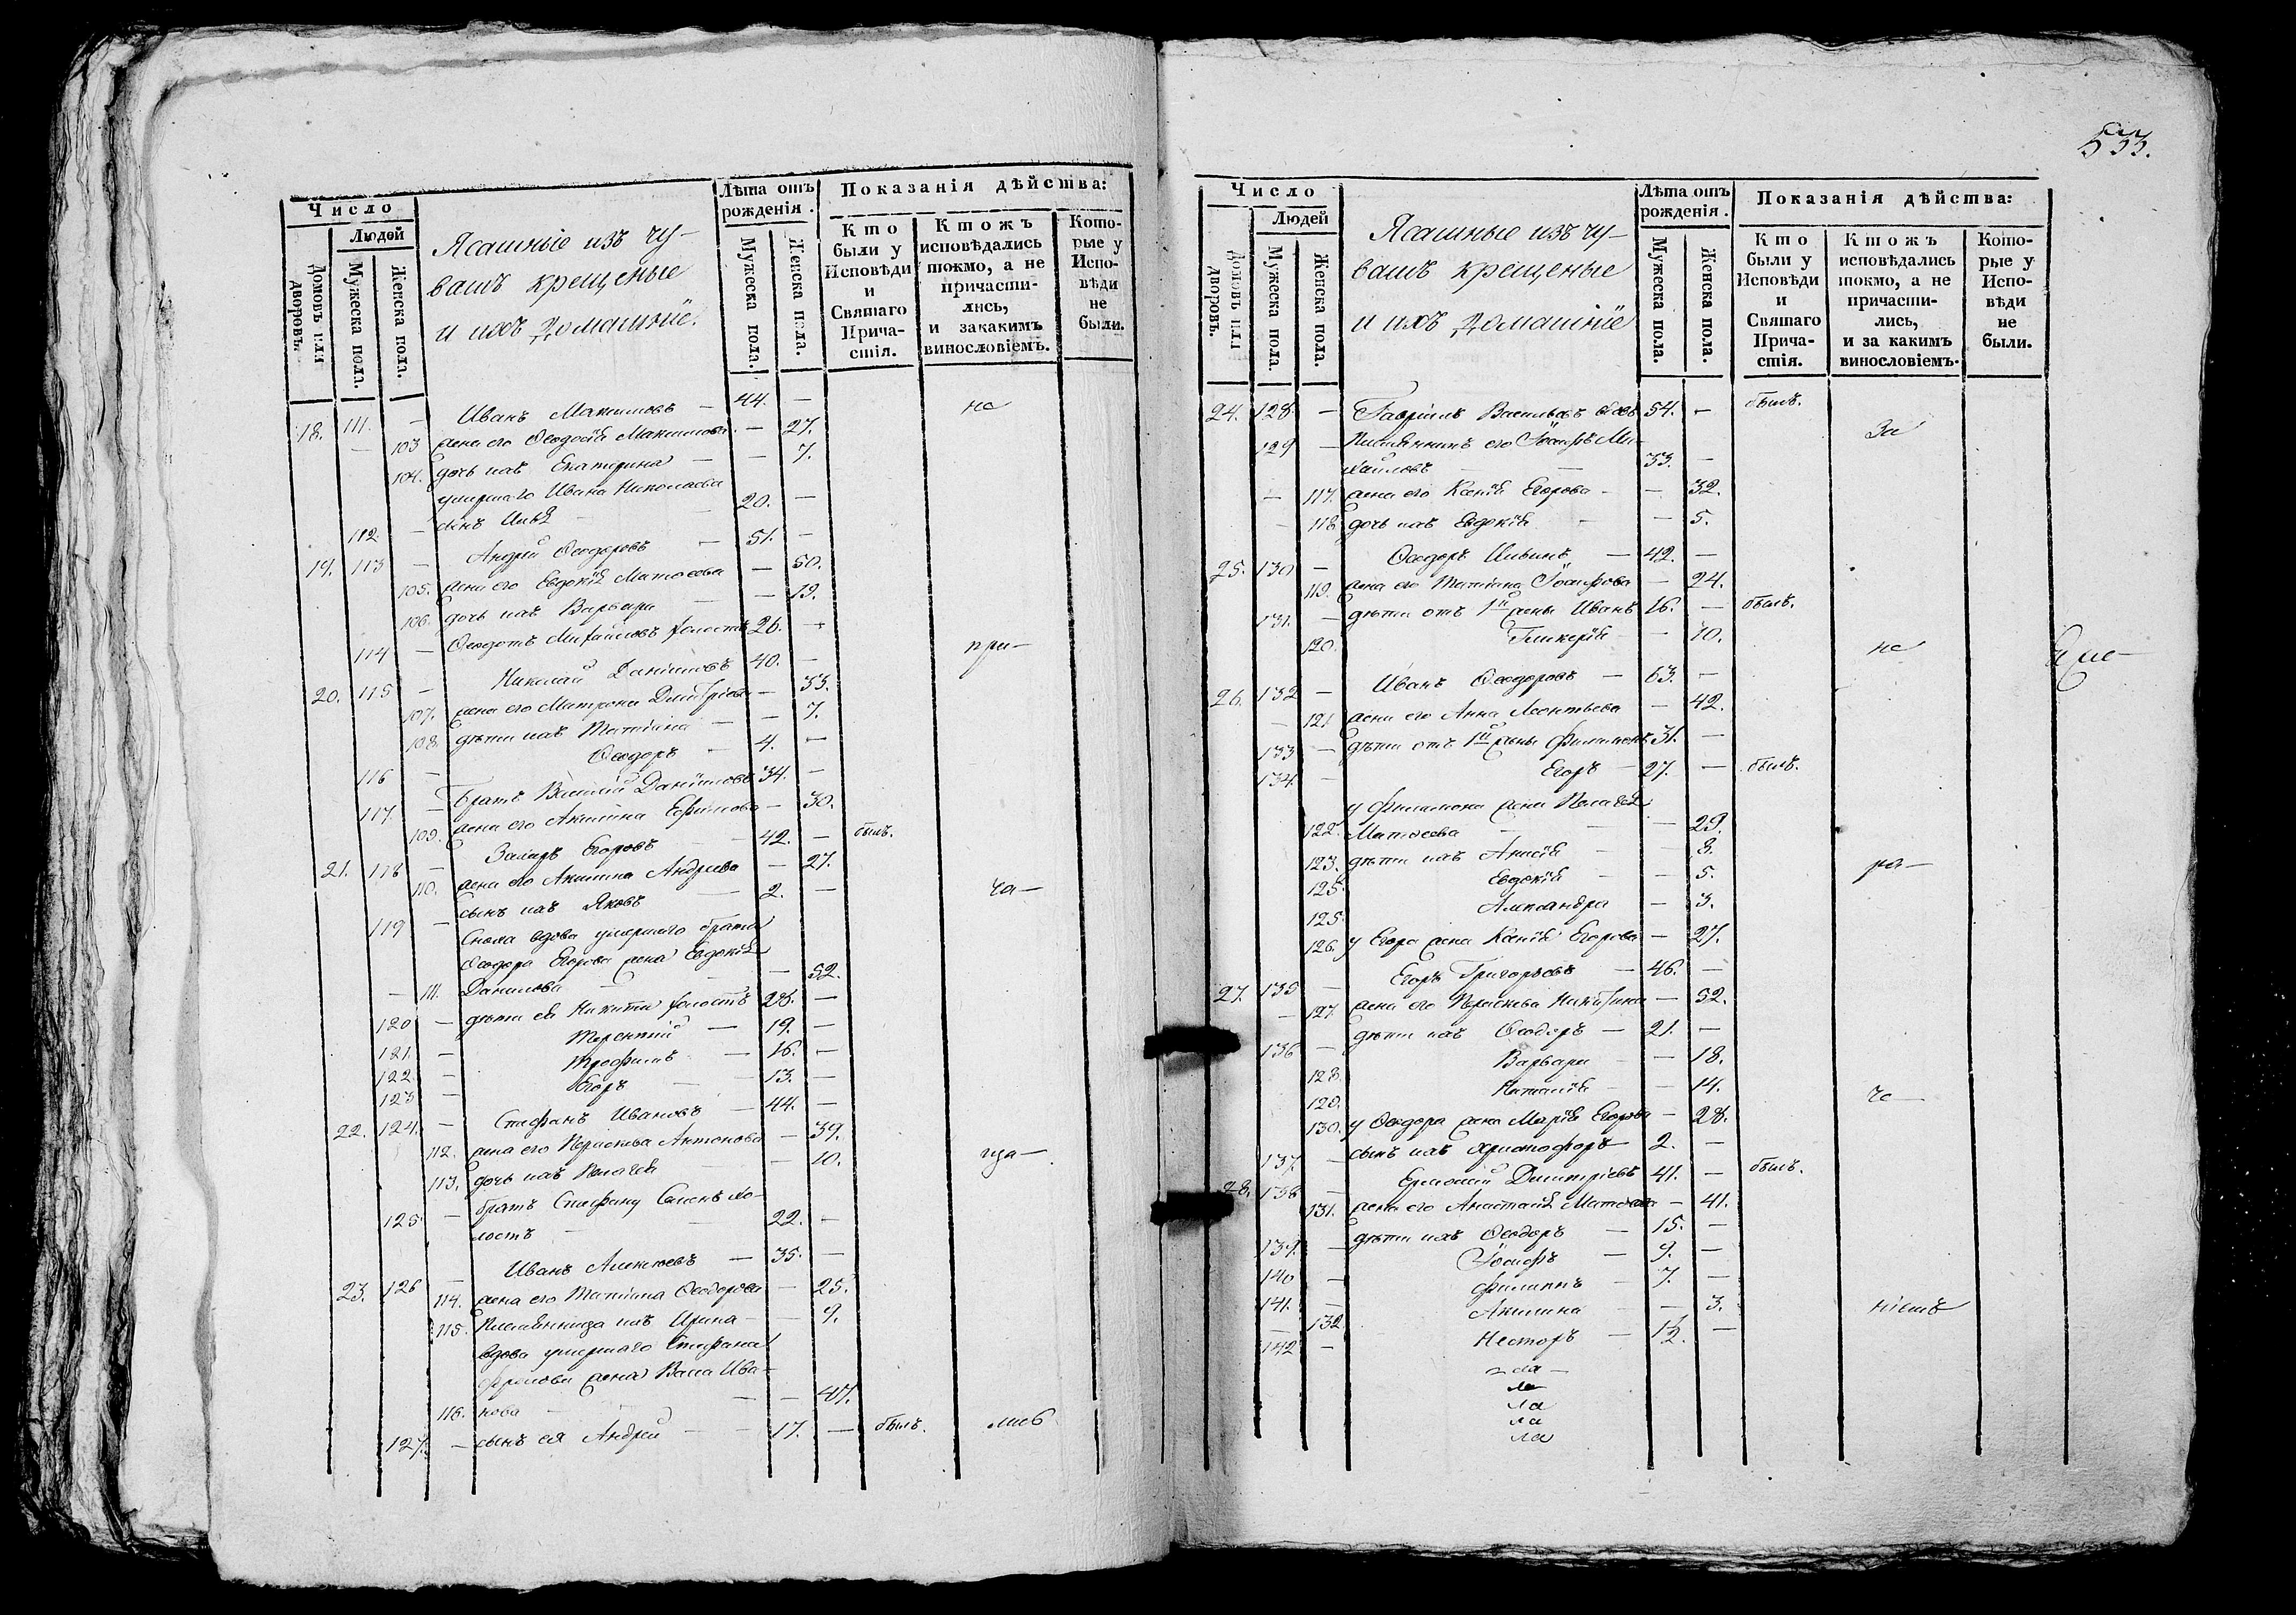 Число
Людей
Домовъ или дворовъ.
Мужеска пола.
Женска пола.
Ясашные изъ чу-
вашъ крещеные
и ихъ домашніе.
Лѣта отъ рожденія.
Мужеска пола.
Женска пола.
Показанія дѣйства:
Кто были у Исповѣди и Святаго Прича-стія.
Ктожъ исповѣдались токмо, а не причасти-лись, и закакимъ винословіемъ.
Кото-рые у Испо-вѣди не были.
18. 111. — Иванъ Максимовъ — 44. — не
— 103 жена его Ѳеодосія Максимова — 27.
104. дочь ихъ Екатерина — — 7.
умершаго Ивана Николаева
112. — сынъ Илья — 20. —
19. 113 — Андрей Ѳеодоровъ — 51. —
105. жена его Евдокія Матвеева — 50.
106. дочь ихъ Варвара — — 19.
114 — Ѳеодотъ Михайловъ холостъ 26. — при-
20. 115 — Николай Даніиловъ 40. —
107. жена его Матрона Димитріева — 33.
108. дѣти ихъ Татіана — — 7.
116 — Ѳеодоръ — 4. —
117. — братъ Василій Даніиловъ 34. —
109. жена его Акилина Ефимова — 30.
21. 118 — Захаръ Егоровъ — 42. — былъ.
110. жена его Акилина Андреева — 27.
119 — сынъ ихъ Яковъ — 2. — ча-
Сноха вдова умершаго брата
Ѳеодора Егорова жена Евдокія
— 111. Данилова — — 52.
120 — дѣти ея Никита холостъ 28. —
121. — Терентій — 19. —
122 — Трофимъ — 16. —
123 — Егоръ — 13. —
22. 124. — Стефанъ Ивановъ — 44. —
112. жена его Параскева Антонова — 39.
113. дочь ихъ Пелагея — 10. ща-
125 — братъ Стефану Семенъ хо-
лостъ — 22. —
23. 126 — Иванъ Алексеевъ — 35. —
114. жена его Татіана Ѳеодорова — 25.
115. Племянница ихъ Ирина — — 9.
вдова умершаго Стефана
жена Васса Ива-
116. нова — — 47.
127. — сынъ ея Андрей — 17. — былъ.
533.
Число
Людей
Домовъ или дворовъ.
Мужеска пола.
Женска пола.
Ясашные изъ чу-
вашъ крещеные
и ихъ домашніе
Лѣта отъ рожденія.
Мужеска пола.
Женска пола.
Показанія дѣйства:
Кто были у Исповѣди и Святаго Прича-стія.
Ктожъ исповѣдались токмо, а не причасти-лись, и за какимъ винословіемъ.
Кото-рые у Испо-вѣди не были.
24. 128. — Гавріилъ Васильевъ вдовъ 54. — былъ.
129 — Племянникъ его Іосифъ Ми- за
хайловъ — 33. —
— 117. жена его Ксенія Егорова — — 32.
— 118 дочь ихъ Евдокія — — 5.
25. 130 — Ѳеодоръ Ильинъ — 42. —
119. жена его Татіана Іосифова — 24.
131. — дѣти отъ 1й жены Иванъ 16. — былъ.
120. Гликерія — — 10. не
26. 132 — Иванъ Ѳеодоровъ — 63. —
— 121 жена его Анна Леонтьева — 42.
133 — дѣти отъ 1й жены Филимонъ 31. —
134. — Егоръ — 27. — былъ.
у Филимона жена Пелагея
122. Матвеева — — 29.
123. дѣти ихъ Анисія — — 8.
125 Евдокія — — 5. ра-
125. Александра — 3.
126. у Егора жена Ксенія Егорова — 27.
27. 135 — Егоръ Григорьевъ — 46. —
— 127. жена его Параскева Никитина — 52.
136 — дѣти ихъ Ѳеодоръ — 21. —
128. Варвара — — 18.
129. Наталія — — 14. че-
130. у Ѳеодора жена Марія Егорова — 28.
137. — сынъ ихъ Христофоръ 2. —
28. 138 — Ермолай Димитріевъ 41. — былъ.
131. жена его Анастасія Матвеева — 41.
139. — дѣти ихъ Ѳеодоръ — 15. —
140 — Іосифъ — 9. —
141. — Филиппъ — 7. —
— 132 Акилина — — 3. ніемъ
142 — Несторъ — —